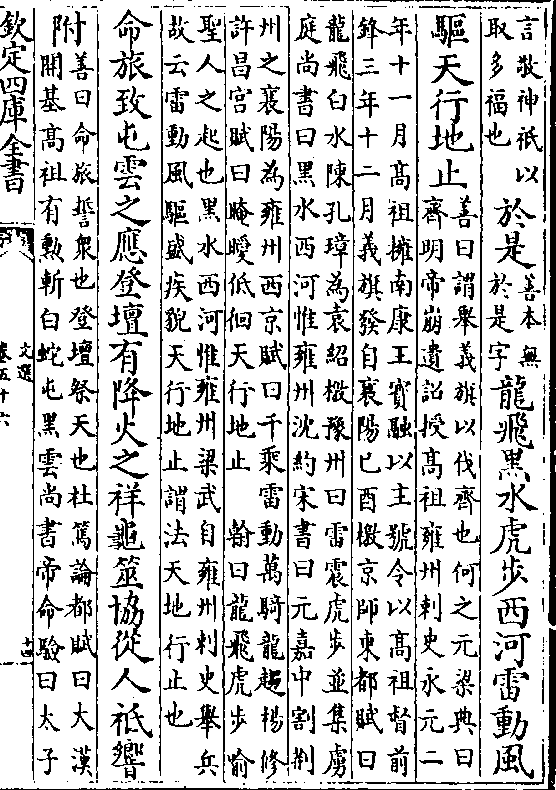 言敬神祇以
取多福也
於是
善本無
於是字
龍飛黑水虎步西河雷動風
驅天行地止
善曰謂舉義旗以伐齊也何之元梁典曰
齊明帝崩遺詔授髙祖雍州刺史永元二
年十一月髙祖擁南康王寳融以主號令以髙祖督前
鋒三年十二月義旗發自襄陽己酉檄京師東都賦曰
龍飛白水陳孔璋為袁紹檄豫州曰雷震虎步並集虜
庭尚書曰黑水西河惟雍州沈約宋書曰元嘉中割荆
州之襄陽為雍州西京賦曰千乘雷動萬騎龍趨楊修
許昌宫賦曰晻曖低徊天行地止　翰曰龍飛虎步喻
聖人之起也黑水西河惟雍州梁武自雍州刺史舉兵
故云雷動風驅盛疾貌天行地止謂法天地行止也
命旅致屯雲之應登壇有降火之祥龜筮協從人祇響
附
善曰命旅誓衆也登壇祭天也杜篤論都賦曰大漢
開基髙祖有勲斬白蛇屯黑雲尚書帝命驗曰太子
欽定四庫全書
文選
卷五十六